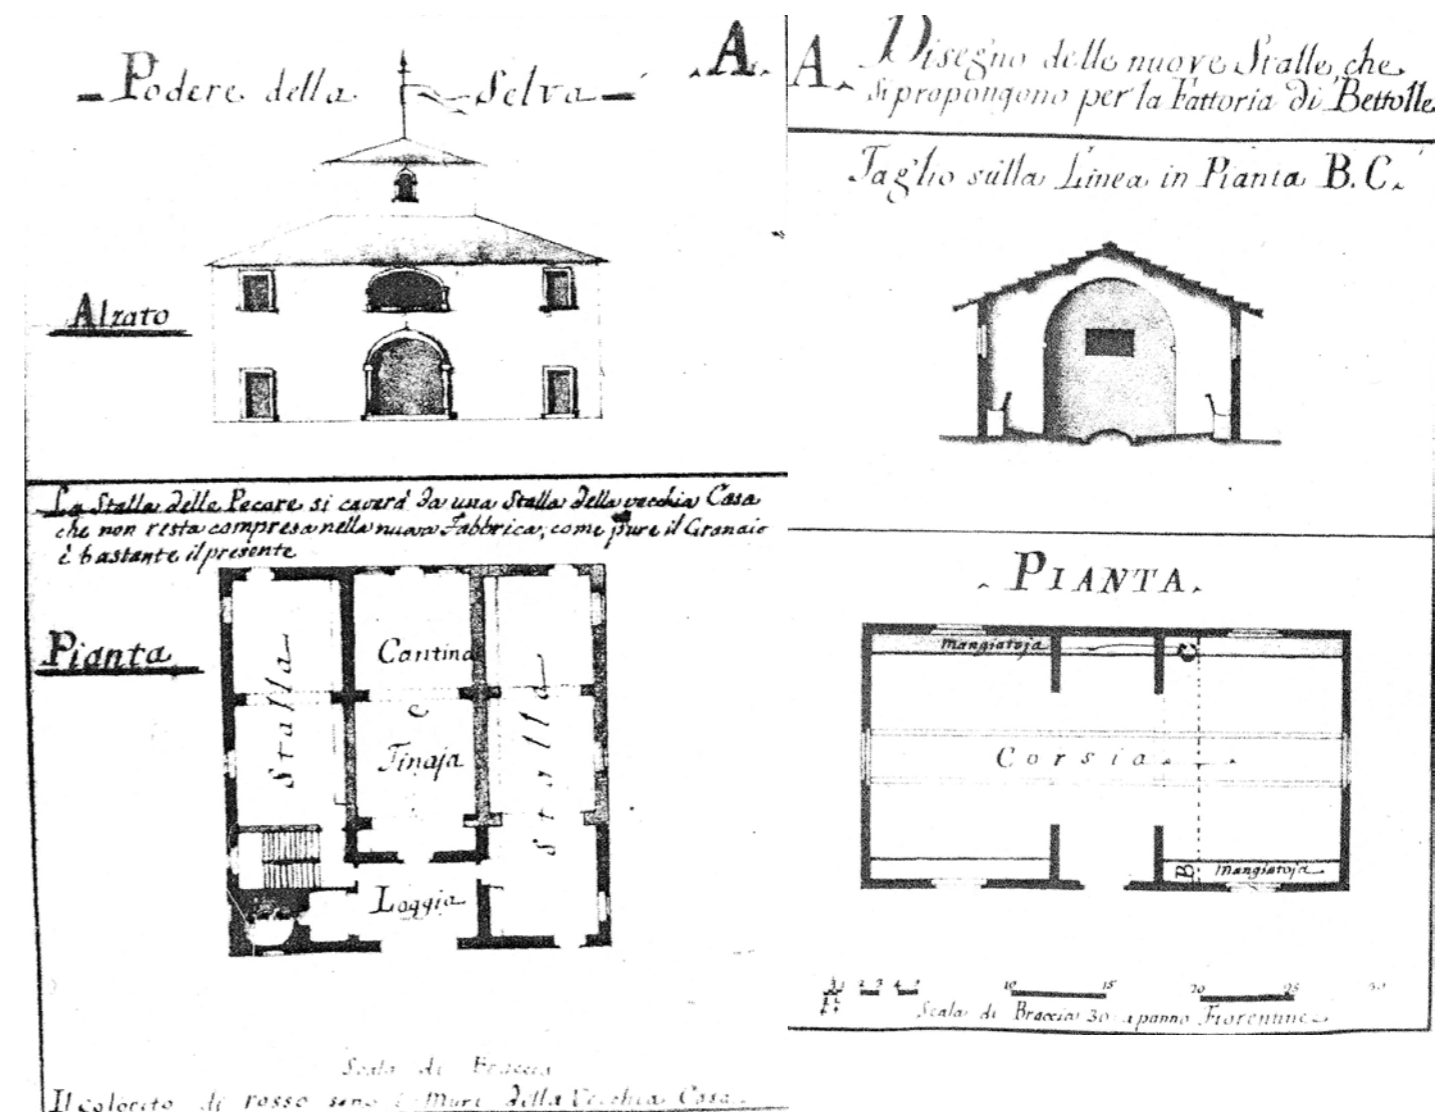 Podere della Selva
A.
Alzato
La Stalla delle Pecore si caverà da una Stalla della vecchia Casa
che non resta compresa nella nuova Fabbrica, come pure il Granaio
è bastante il presente
Pianta
Stalla
Cantina
e
Tinaja
Stalla
Loggia
Scala di Braccia
Il colorito di rosso sono i Muri della Vecchia Casa.
A.
Disegno delle nuove Stalle, che
si propongono per la Fattoria di Bettolle
Taglio sulla Linea in Pianta B.C.
PIANTA.
Mangiatoja
C
Corsia
B
Mangiatoja
1 2 3 4 5 10 15 20 25 30
Scala di Braccia 30 a panno Fiorentine